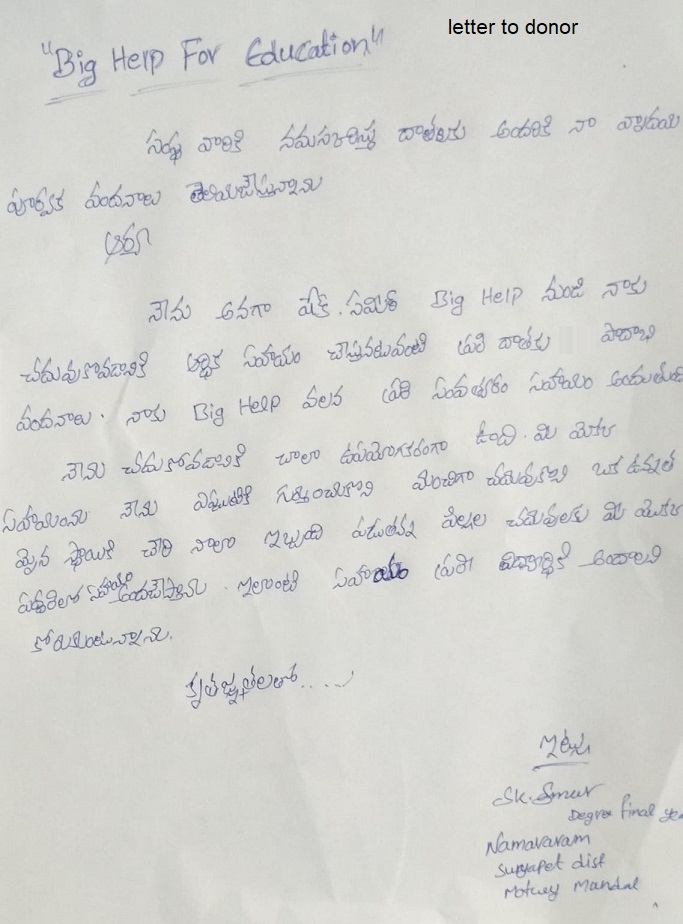 letter to donor
"Big Help For Education"
సంస్థ వారికి నమస్కరిస్తూ దాతలకు అందరికి నా హృదయ
పూర్వక వందనాలు తెలియజేస్తున్నాను
ఆర్యా
నేను అనగా షేక్. సమీర్ Big Help నుండి నాకు
చదువుకోవడానికి ఆర్థిక సహాయం చేస్తునటువంటి ప్రతి దాతకు పాదాభి
వందనాలు. నాకు Big Help వలన ప్రతి సంవత్సరం సహాయం అందుతుంది
నేను చదుకోవడానికి చాలా ఉపయోగకరంగా ఉంది. మి యొక్క
సహాయంను నేను ఎప్పటికి గుర్తుంచుకొని మంచిగా చదువుకొని ఒక ఉన్నత
మైన స్థాయికి చేరి నాలా ఇబ్బంది పడుతున్న పిల్లల చదువులకు మి యొక్క
సహాయం అందచేస్తాను. ఇలాంటి సహాయం ప్రతి విద్యార్థికి అందాలని
కోరుకుంటున్నాను.
కృతజ్ఞతలతో.....
ఇట్లు
Sk.
Degree final
Namavaram
Suryapet dist
Motuey Mandal